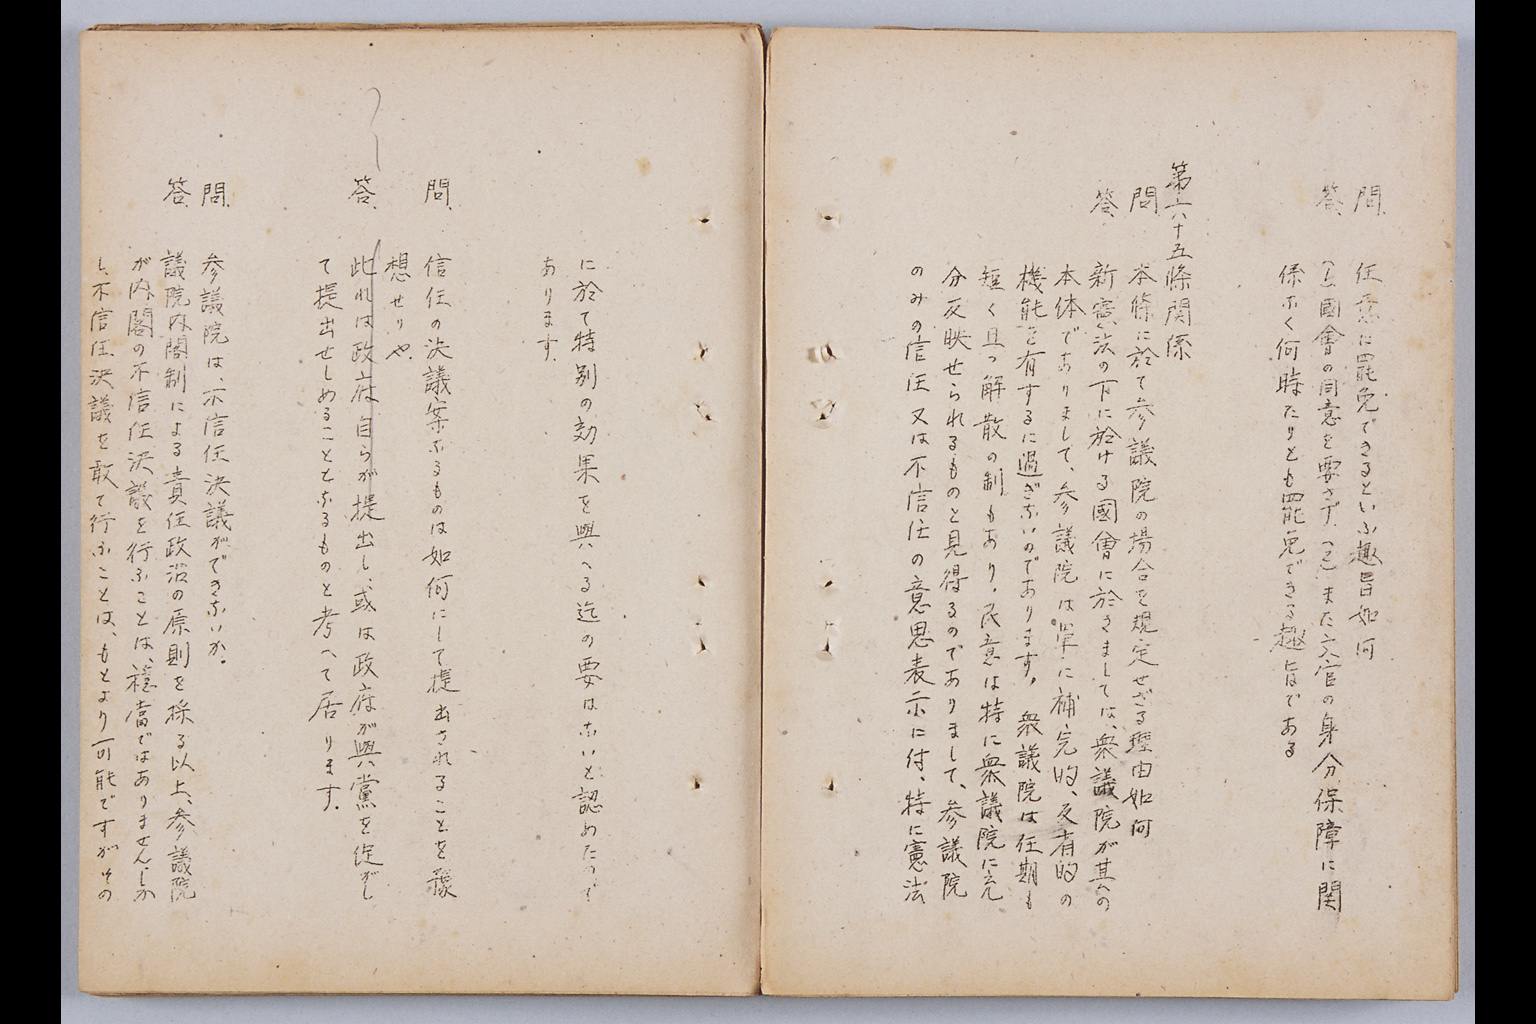 問、任意に罷免できるといふ趣旨如何
答、(1)國會の同意を要さず、(2)また文官の身分保障に関
係なく何時たりとも罷免できる趣旨である
第六十五條関係
問 本條に於て参議院の場合を規定せざる理由如何
答、新憲法の下に於ける國會に於きましては、衆議院が其の
本体でありまして、参議院は単に補完的、
機能を有するに過ぎないのであります。衆議院は任期も
短く且つ解散の制もあり、民意は特に衆議院に充
分反映せられるものと見得るのでありまして、参議院
のみの信任又は不信任の意思表示に付、特に憲法
に於て特別の効果を與へる迄の要はないと認めたので
あります。
問、信任の決議案なるものは如何にして提出されることを豫
想せりや、
答、此れは政府自らが提出し、或は政府が與黨を促がし
て提出せしめることとなるものと考へて居ります。
問、参議院は、不信任決議ができないか。
答、議院内閣制による責任政治の原則を採る以上、参議院
が内閣の不信任決議を行ふことは、穏當ではありません。しか
し、不信任決議を敢て行ふことは、もとより可能ですがその